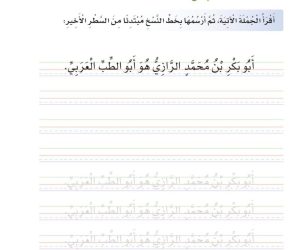 أَقْرَأُ الْجُمْلَةَ الْآتِيَةَ، ثُمَّ أَرْسُمُهَا بِخَطِّ النَّسْخِ مُبْتَدِئًا مِنَ السَّطْرِ الْأَخِيرِ:
أَبُو بَكْرِ بْنُ مُحَمَّدٍ الرَّازِيُّ هُوَ أَبُو الطِّبِّ الْعَرَبِيِّ.
أَبُو بَكْرِ بْنُ مُحَمَّدٍ الرَّازِيُّ هُوَ أَبُو الطِّبِّ الْعَرَبِيِّ.
أَبُو بَكْرِ بْنُ مُحَمَّدٍ الرَّازِيُّ هُوَ أَبُو الطِّبِّ الْعَرَبِيِّ.
أَبُو بَكْرِ بْنُ مُحَمَّدٍ الرَّازِيُّ هُوَ أَبُو الطِّبِّ الْعَرَبِيِّ.